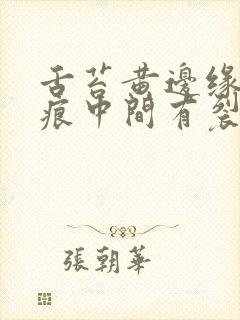 舌苔黄邊緣
痕中間有裂
張朝華